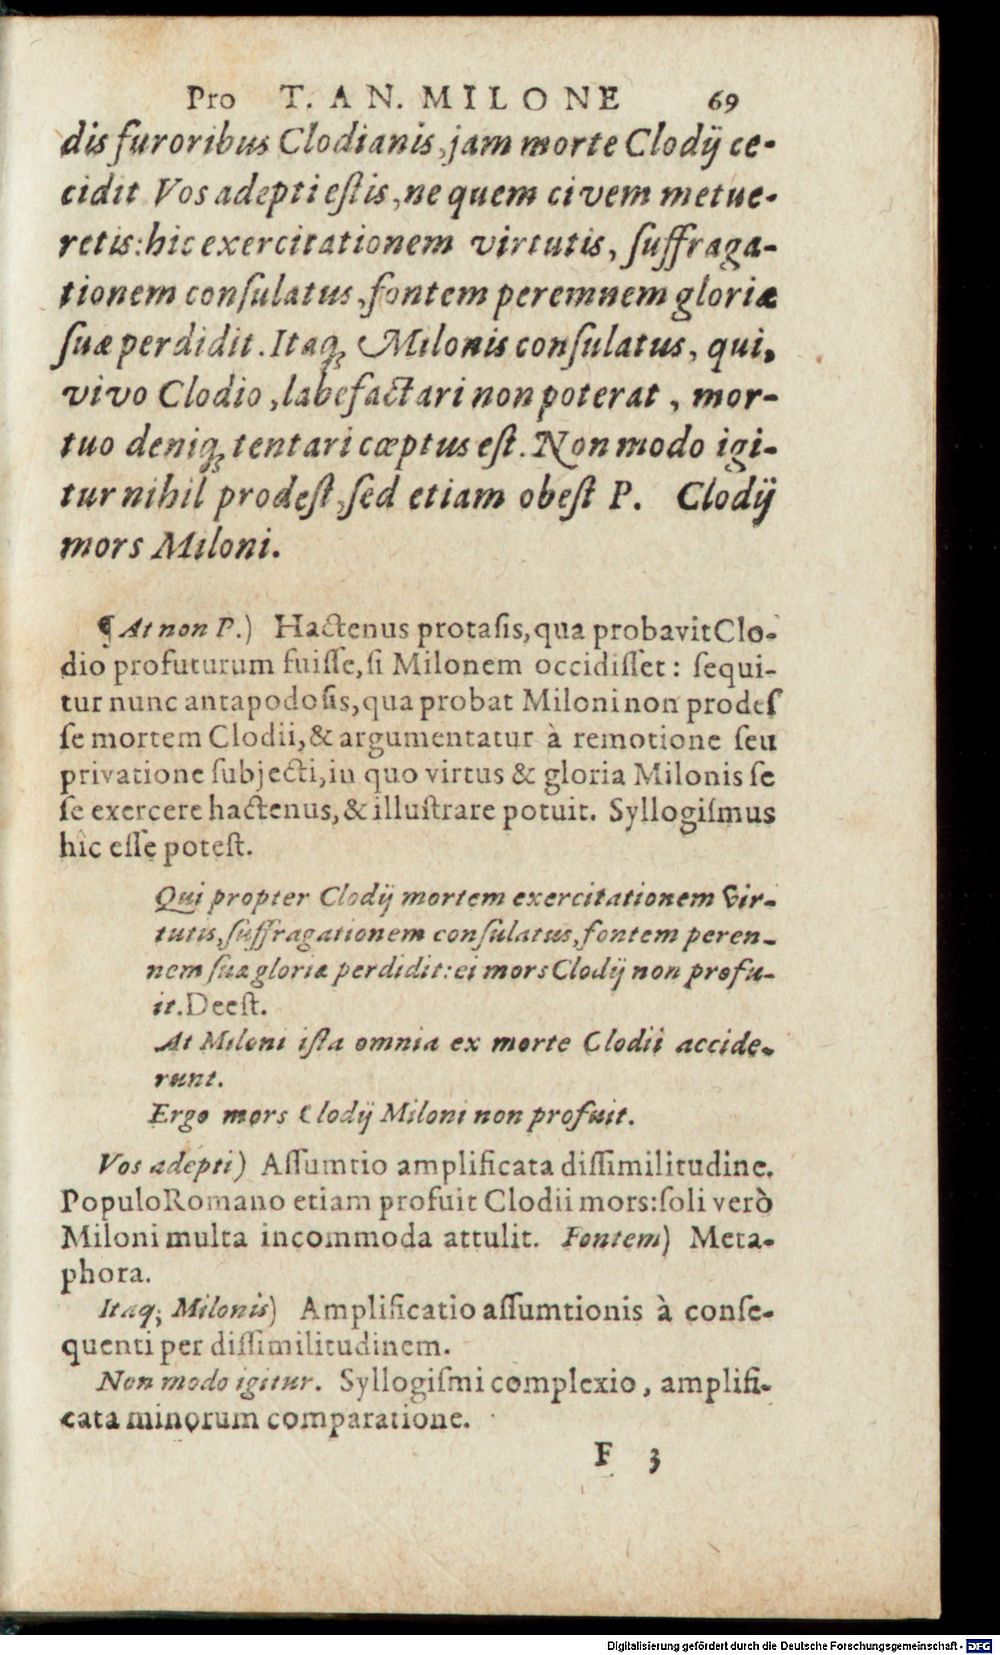 Pro T. AN. MILONE 69
dis furoribus Clodianis, jam morte Clodij ce-
cidit Vos adepti eſtis, ne quem civem metue-
retis: hic exercitationem virtutis, ſuffraga-
tionem conſulatus, fontem peremnem gloriæ
ſuæ perdidit. Itaq; Milonis conſulatus, qui,
vivo Clodio, labefactari non poterat, mor-
tuo deniq; tentari cœptus eſt. Non modo igi-
tur nihil prodeſt, ſed etiam obeſt P. Clodij
mors Miloni.
¶ At non P.) Hactenus protaſis, qua probavit Clo-
dio profuturum fuiſſe, ſi Milonem occidiſſet: ſequi-
tur nunc antapodoſis, qua probat Miloni non prodeſ
ſe mortem Clodii, & argumentatur à remotione ſeu
privatione ſubjecti, in quo virtus & gloria Milonis ſe
ſe exercere hactenus, & illuſtrare potuit. Syllogiſmus
hic eſſe poteſt.
Qui propter Clodij mortem exercitationem vir-
tutis, ſuffragationem conſulatus, fontem peren-
nem ſuæ gloriæ perdidit: ei mors Clodij non profu-
it. Deeſt.
At Miloni iſta omnia ex morte Clodii accide-
runt.
Ergo mors Clodij Miloni non profuit.
Vos adepti) Aſſumtio amplificata diſſimilitudine.
Populo Romano etiam profuit Clodii mors: ſoli verò
Miloni multa incommoda attulit. Fontem) Meta-
phora.
Itaq; Milonis) Amplificatio aſſumtionis à conſe-
quenti per diſſimilitudinem.
Non modo igitur. Syllogiſmi complexio, amplifi-
cata minorum comparatione.
F 3
Digitalisierung gefördert durch die Deutsche Forschungsgemeinschaft - DFG